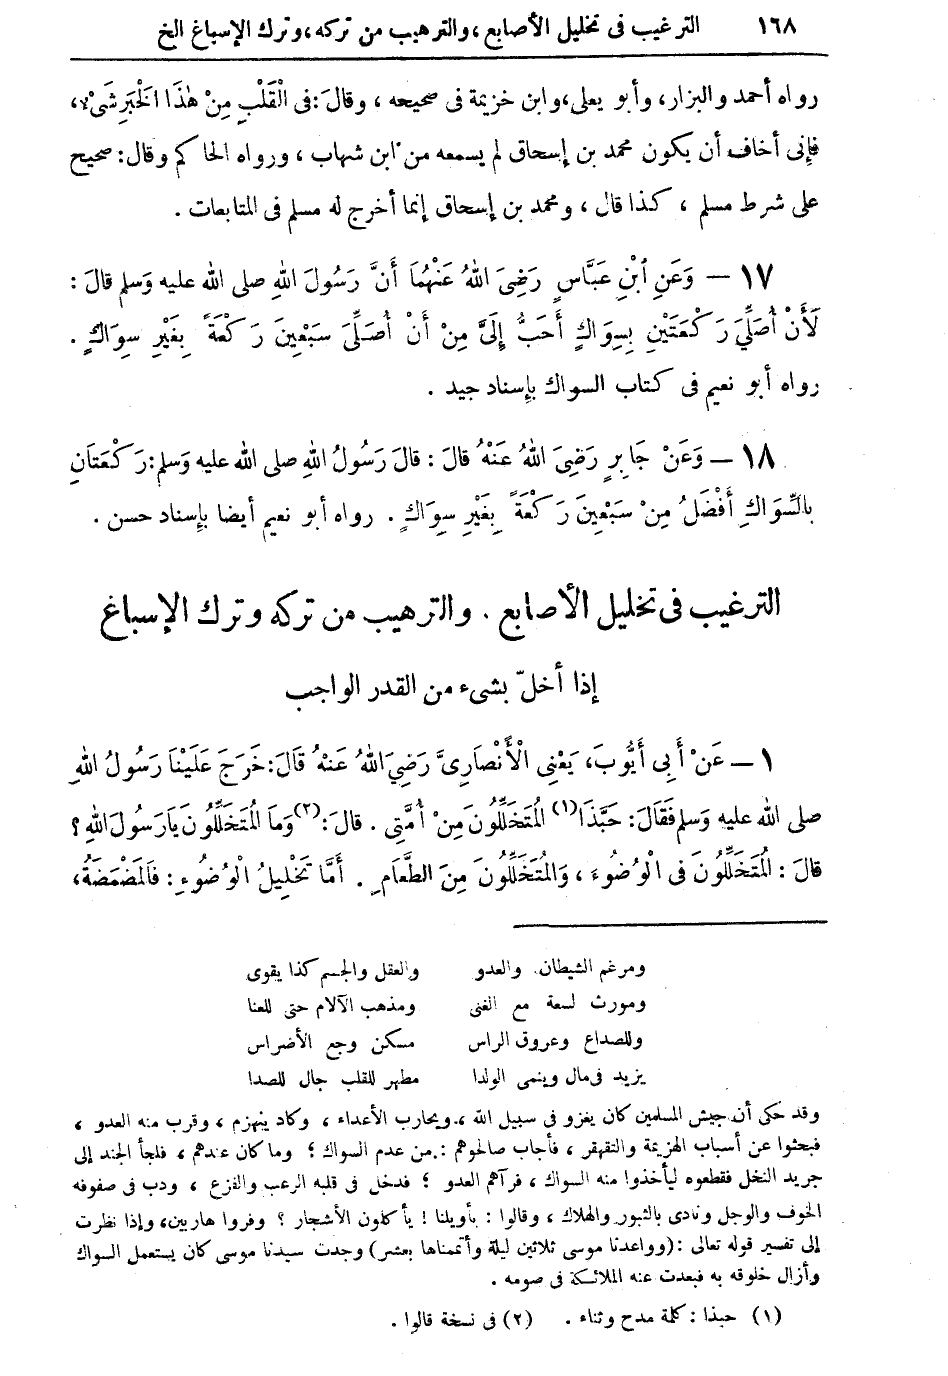 ١٦٨ الترغيب فى تخليل الأصابع، والترهيب من تركه، وترك الإسباغ الخ
رواه أحمد والبزار، وأبو يعلى، وابن خزيمة فى صحيحه ، وقالَ: فى الْقَلْبِ مِنْ هٰذَا الخَبَرِ شَىْءٌ،
فإنى أخاف أن يكون محمد بن إسحاق لم يسمعه من ابن شهاب ، ورواه الحاكم وقال: صحيح
على شرط مسلم ، كذا قال ، ومحمد بن إسحاق إنما أخرج له مسلم فى المتابعات .
١٧ — وَعَنِ ابْنِ عَبَّاسٍ رَضِىَ اللهُ عَنْهُمَا أَنَّ رَسُولَ اللهِ صلى الله عليه وَسلم قالَ :
لَأَنْ أُصَلِّيَ رَكْعَتَيْنِ بِسِوَاكٍ أَحَبُّ إِلَىَّ مِنْ أَنْ أُصَلِّىَ سَبْعِينَ رَكْعَةً بِغَيْرِ سِوَاكٍ .
رواه أبو نعيم فى كتاب السواك بإسناد جيد .
١٨ — وَعَنْ جَابِرٍ رَضِىَ اللهُ عَنْهُ قالَ : قالَ رَسُولُ اللهِ صلى الله عليه وَسلم: رَكْعَتَانِ
بِالسِّوَاكِ أَفْضَلُ مِنْ سَبْعِينَ رَكْعَةً بِغَيْرِ سِوَاكٍ . رواه أبو نعيم أيضا بإسناد حسن .
الترغيب فى تخليل الأصابع . والترهيب من تركه وترك الإسباغ
إذا أخلّ بشىء من القدر الواجب
١ — عَنْ أَبِى أَيُّوبَ، يَعْنِى الْأَنْصَارِىَّ رَضِيَ اللهُ عَنْهُ قَالَ: خَرَجَ عَلَيْنَا رَسُولُ اللهِ
صلى الله عليه وَسلم فَقَالَ: حَبَّذَا (١) الْمُتَخَلِّلُونَ مِنْ أُمَّتِى . قالَ: (٢) وَمَا الْمُتَخَلِّلُونَ يَارَسُولَ اللهِ ؟
قالَ : الْمُتَخَلِّلُونَ فى الْوُضُوءِ ، وَالْمُتَخَلِّلُونَ مِنَ الطَّعَامِ . أَمَّا تَخْلِيلُ الْوُضُوءِ : فَالْمَضْمَضَةُ،
ومرغم الشيطان والعدو والعقل والجسم كذا يقوى
ومورث لسعة مع الغنى ومذهب الآلام حتى للعنا
وللصداع وعروق الراس مسكن وجع الأضراس
يزيد فى مال وينمى الولدا مطهر للقلب جال للصدا
وقد حكى أن جيش المسلمين كان يغزو فى سبيل الله ، ويحارب الأعداء ، وكاد ينهزم ، وقرب منه العدو ،
فبحثوا عن أسباب الهزيمة والتقهقر ، فأجاب صالحوهم : من عدم السواك ؛ وما كان عندهم ، فلجأ الجند إلى
جريد النخل فقطعوه ليأخذوا منه السواك ، فرآهم العدو ؛ فدخل فى قلبه الرعب والفزع ، ودب فى صفوفه
الخوف والوجل ونادى بالثبور والهلاك ، وقالوا : ياويلنا ! يأكلون الأشجار ؟ وفروا هاربين، وإذا نظرت
إلى تفسير قوله تعالى : (وواعدنا موسى ثلاثين ليلة وأتممناها بعشر) وجدت سيدنا موسى كان يستعمل السواك
وأزال خلوقه به فبعدت عنه الملائكة فى صومه .
(١) حبذا : كلمة مدح وثناء . (٢) فى نسخة قالوا .